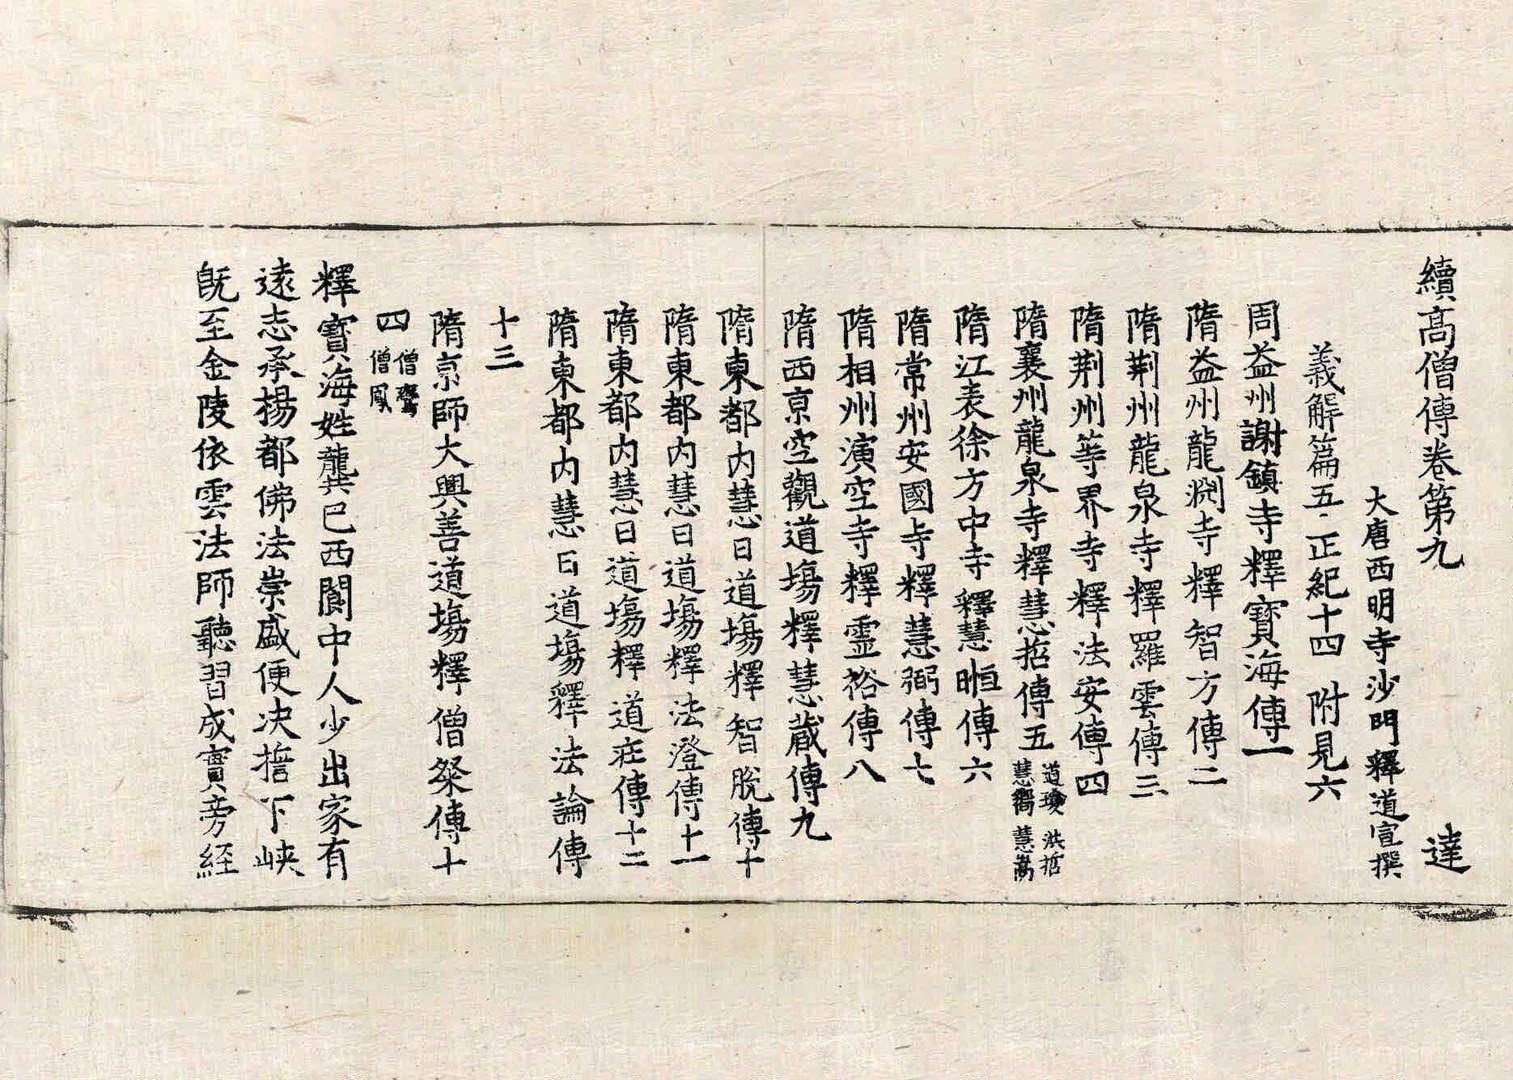 續髙僧傳卷第九 達
大唐西明寺沙門釋道宣撰
義解篇五 正紀十四 附見六
周益州謝鎮寺釋寶海傳一
隋益州龍淵寺釋智方傳二
隋荆州龍泉寺釋羅雲傳三
隋荆州等界寺釋法安傳四
隋襄州龍泉寺釋慧哲傳五 道瓊 洪哲 慧嚮 慧嵩
隋江表徐方中寺釋慧暅傳六
隋常州安國寺釋慧弼傳七
隋相州演空寺釋靈裕傳八
隋西京空觀道場釋慧藏傳九
隋東都内慧日道場釋智脫傳十
隋東都内慧日道場釋法澄傳十一
隋東都内慧日道場釋道莊傳十二
隋東都内慧日道場釋法論傳
十三
隋京師大興善道場釋僧粲傳十
四 僧鸞 僧鳳
釋寶海姓龔巴西閬中人少出家有
遠志承楊都佛法崇盛便決擔下峽
旣至金陵依雲法師聽習成實旁經